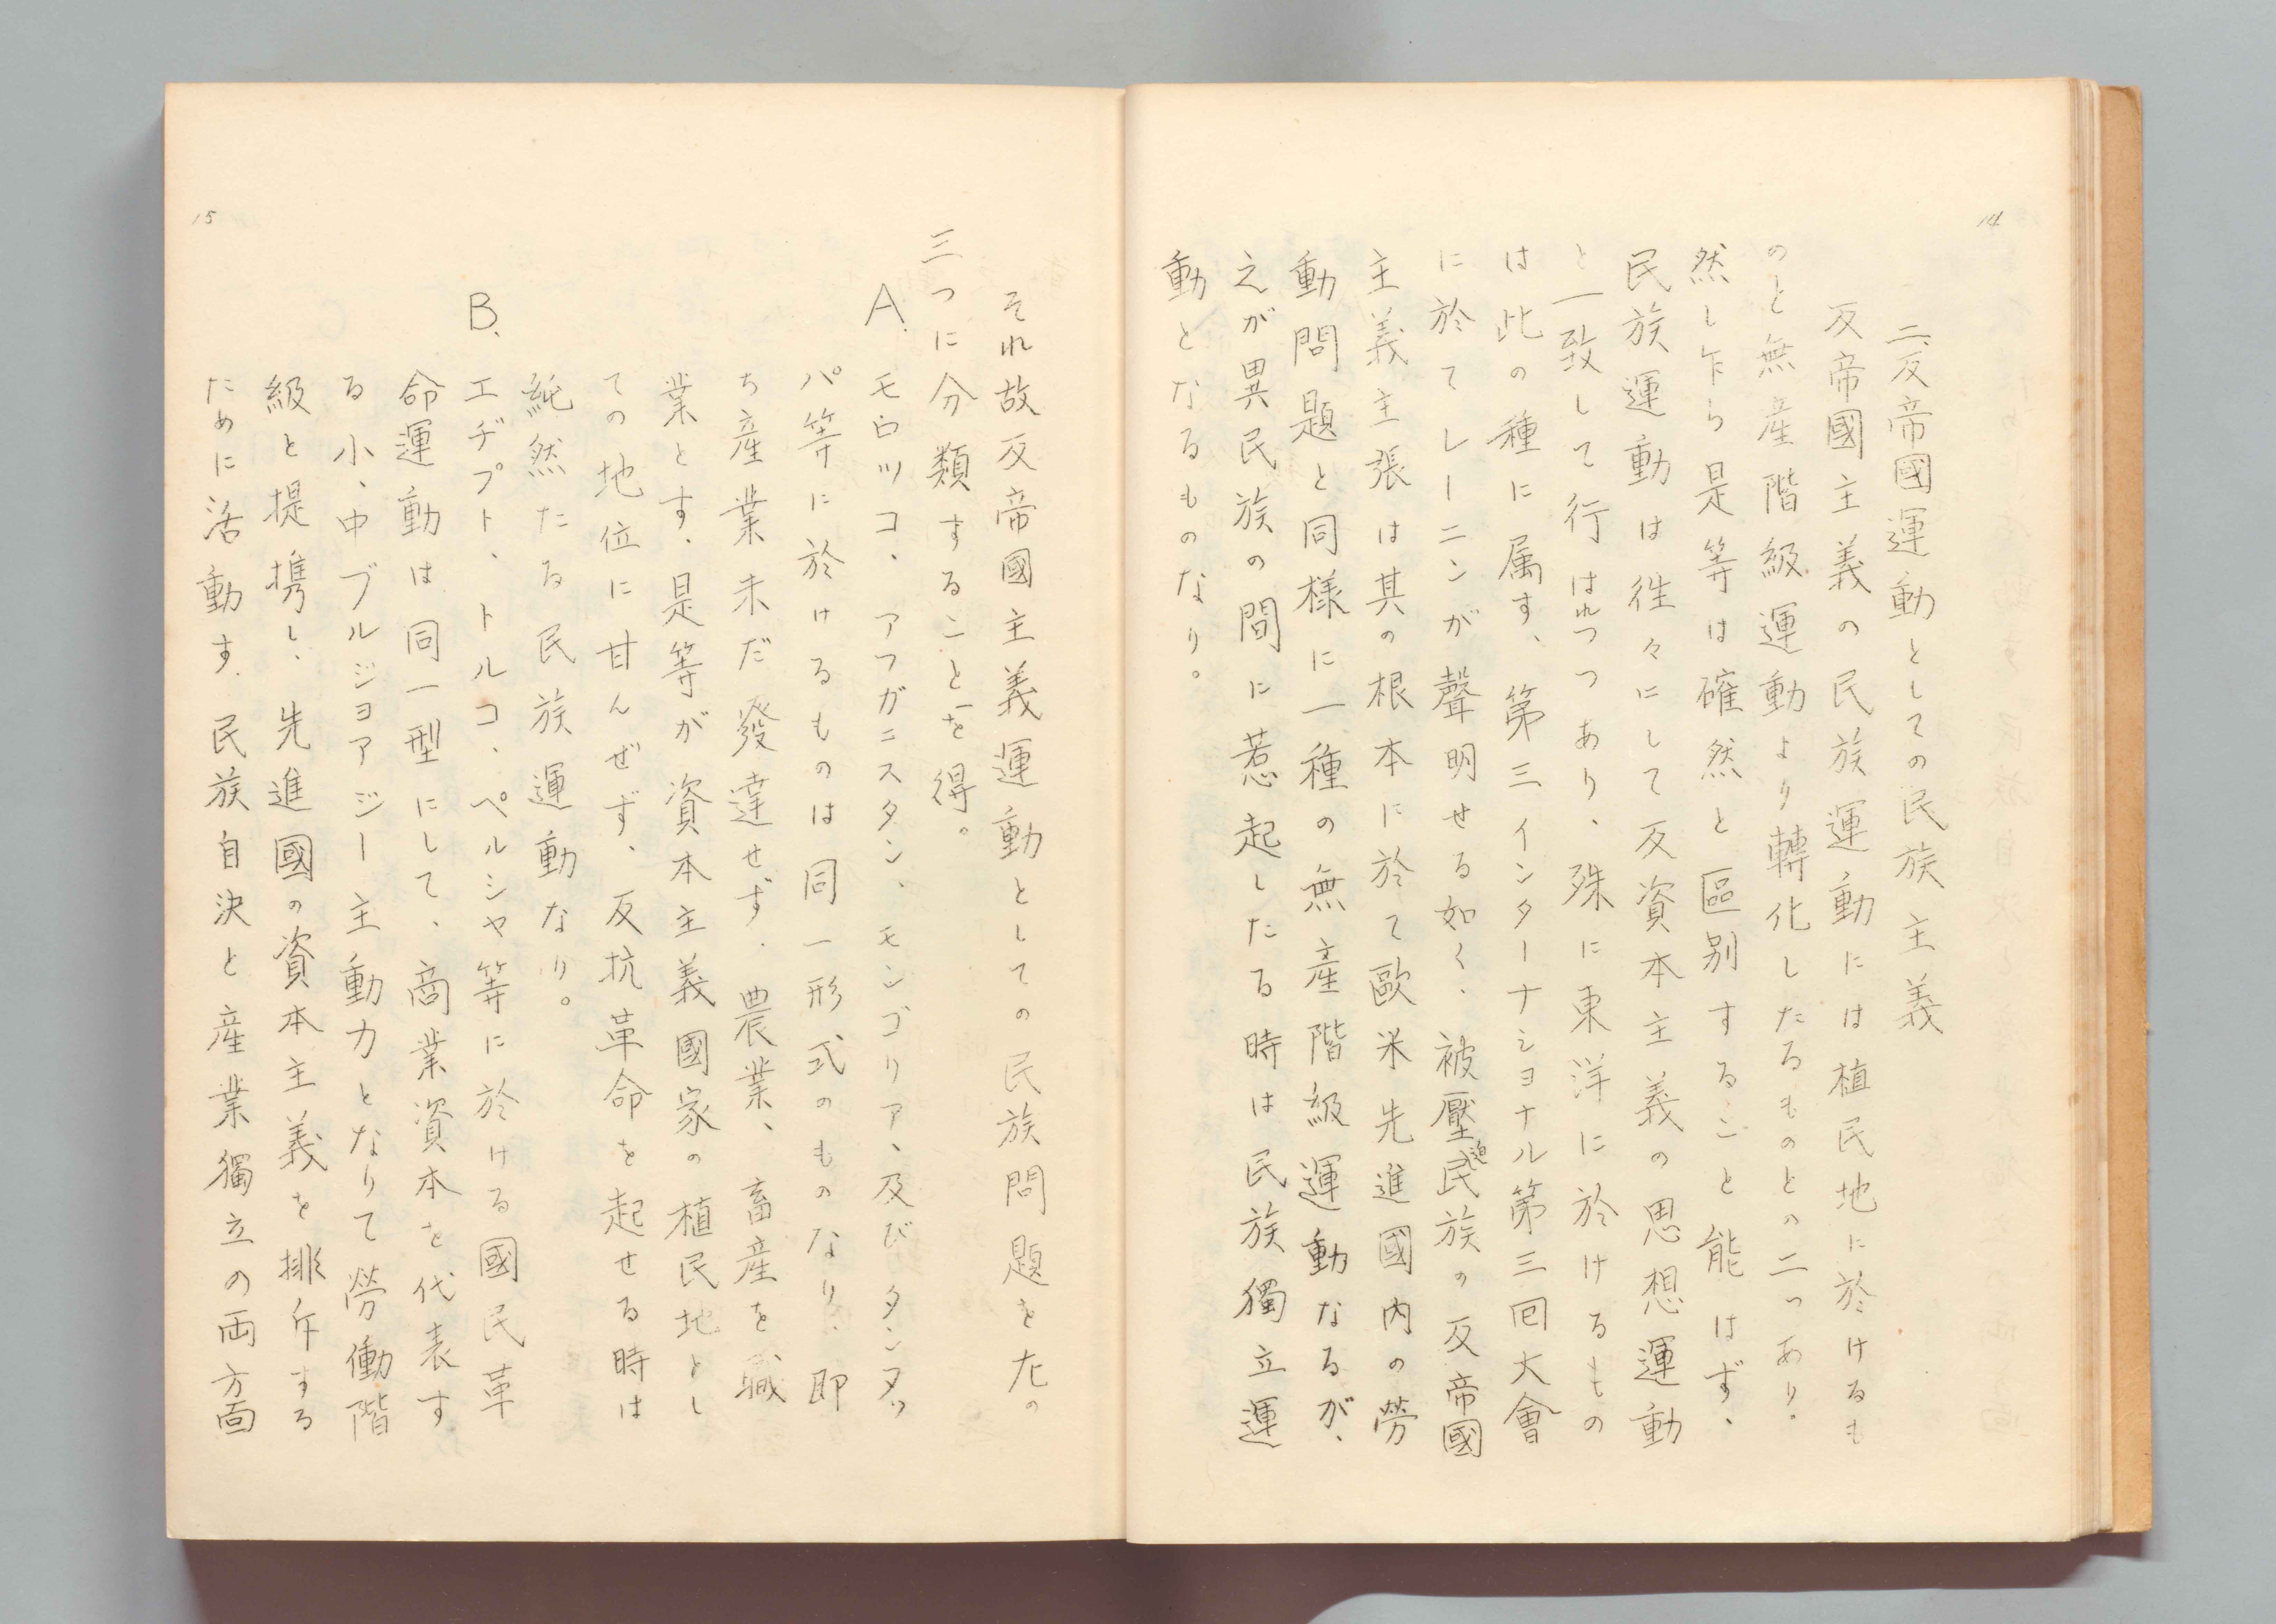 14
二、反帝國運動としての民族主義
反帝國主義の民族運動には植民地に於けるも
のと無産階級運動より轉化したるものとの二つあり。
然し乍ら是等は確然と區別すること能はず、
民族運動は徃々にして反資本主義の思想運動
と一致して行はれつつあり、殊に東洋に於けるもの
は此の種に属す、第三インターナショナル第三回大會
に於てレーニンが聲明せる如く、被壓迫民族の反帝國
主義主張は其の根本に於て歐米先進國內の勞
動問題と同様に一種の無産階級運動なるが、
之が異民族の間に惹起したる時は民族獨立運
動となるものなり。
それ故反帝國主義運動としての民族問題を左の
三つに分類することを得。
A. モロツコ、アフガニスタン、モンゴリア、及びタンヌツ
パ等に於けるものは同一形式のものなり、即
ち産業未だ發達せず、農業、畜産を職
業とす、是等が資本主義國家の植民地とし
ての地位に甘んぜず、反抗革命を起せる時は
純然たる民族運動なり。
B. エヂプト、トルコ、ペルシヤ等に於ける國民革
命運動は同一型にして、商業資本を代表す
る小、中ブルジヨアジー主動力となりて勞働階
級と提携し、先進國の資本主義を排斥する
ために活動す、民族自決と産業獨立の両方面
15